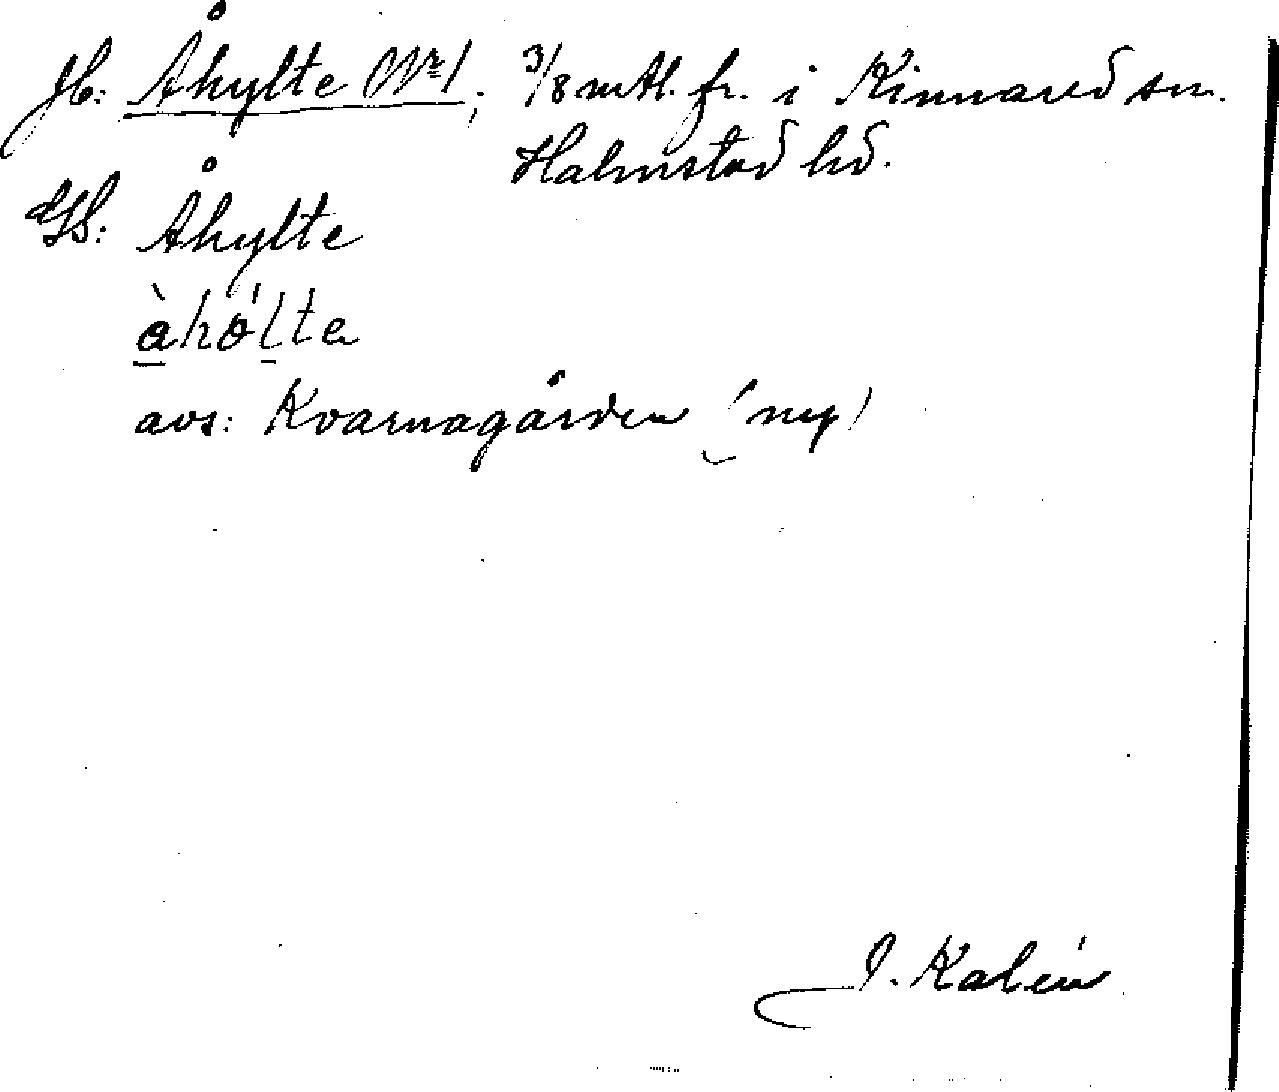 Jb: Åhylte Nr 1; 3/8 mtl. fr. i Kinnared sn.
Halmstad hd.
GS: Åhylte
àhó̱lta
avs: Kvarnagården (ny)
J. Kalén